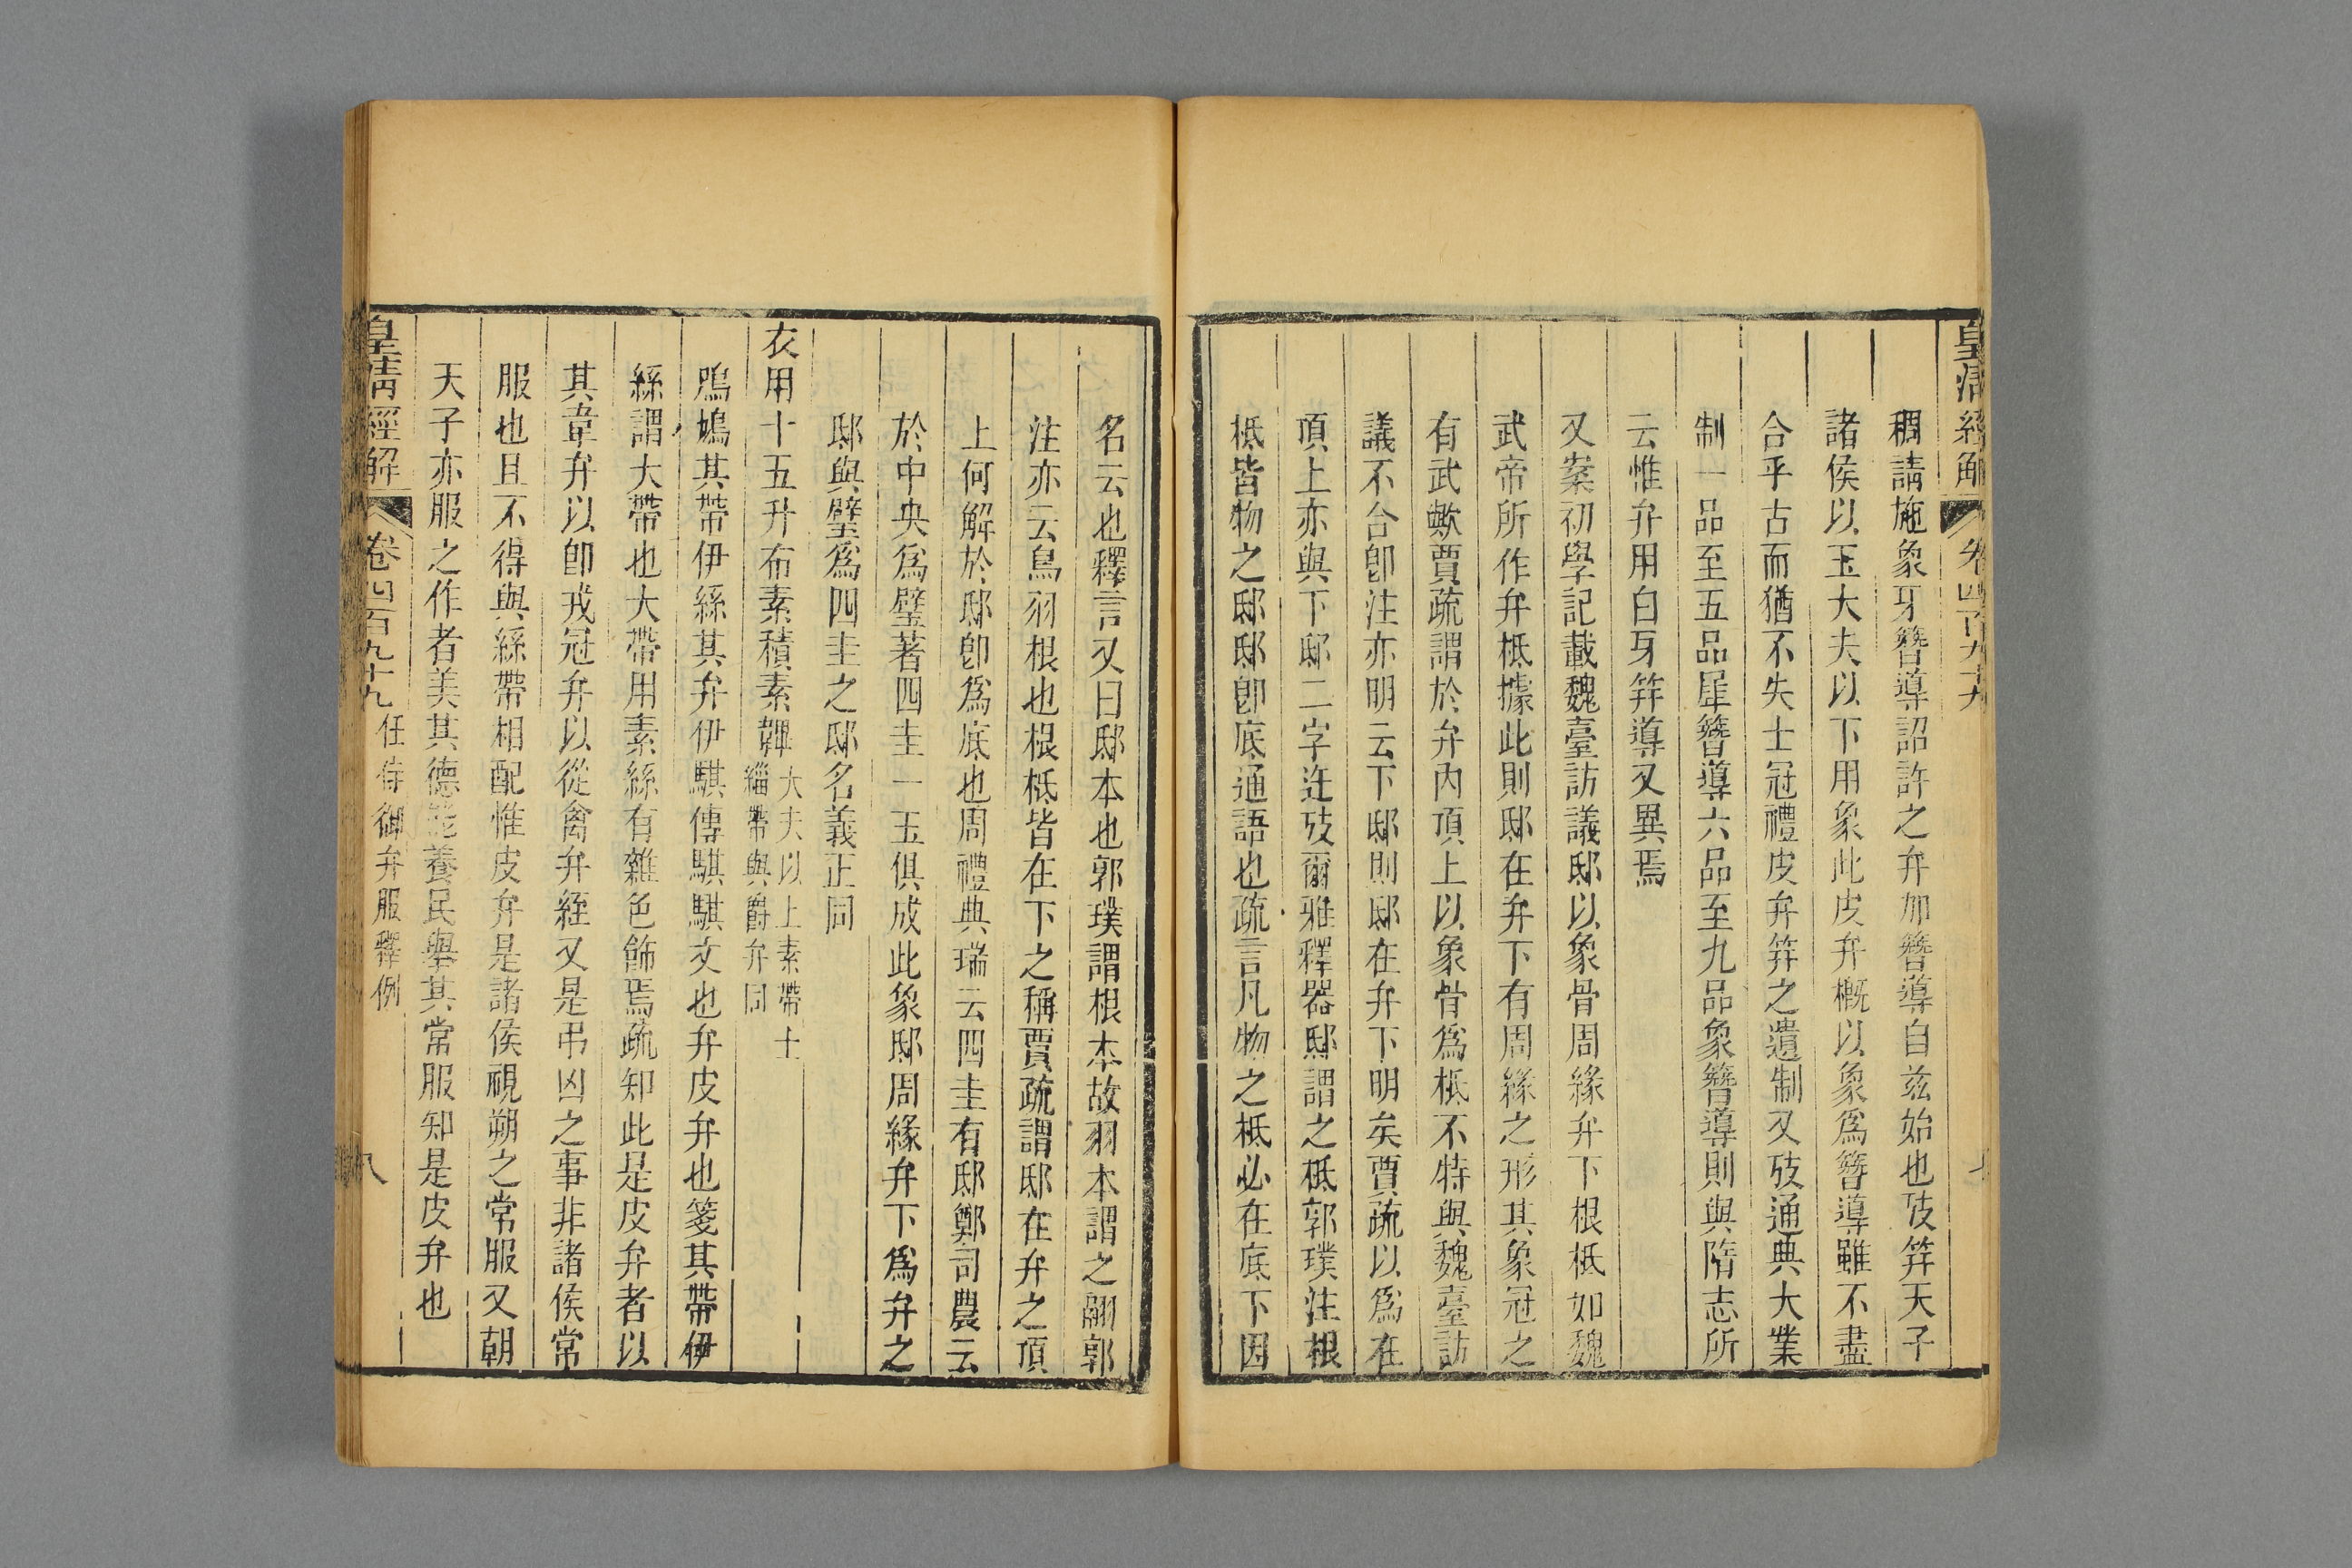 皇清經解 卷四百九十九
稠請施象牙簪導詔許之弁加簪導自兹始也攷笄天子
諸侯以玉大夫以下用象此皮弁槪以象爲簪導雖不盡
合乎古而猶不失士冠禮皮弁笄之遺制又攷通典大業
制一品至五品犀簪導六品至九品象簪導則與隋志所
云惟弁用白牙笄導又異焉
又案初學記載魏臺訪議邸以象骨周緣弁下根柢如魏
武帝所作弁柢據此則邸在弁下有周緣之形其象冠之
有武歟賈疏謂於弁內頂上以象骨爲柢不特與魏臺訪
議不合卽注亦明云下邸則邸在弁下明矣賈疏以爲在
頂上亦與下邸二字迕攷爾雅釋器邸謂之柢郭璞注根
柢皆物之邸邸卽底通語也疏言凡物之柢必在底下因
名云也釋言又曰邸本也郭璞謂根本故羽本謂之翮郭
注亦云鳥羽根也根柢皆在下之稱賈疏謂邸在弁之頂
上何解於邸卽爲底也周禮典瑞云四圭有邸鄭司農云
於中央爲璧著四圭一玉俱成此象邸周緣弁下爲弁之
邸與璧爲四圭之邸名義正同
衣用十五升布素積素韠大夫以上素帶士
緇帶與爵弁同
鳲鳩其帶伊絲其弁伊騏傳騏騏文也弁皮弁也箋其帶伊
絲謂大帶也大帶用素絲有雜色飾焉疏知此是皮弁者以
其韋弁以卽戎冠弁以從禽弁絰又是弔凶之事非諸侯常
服也且不得與絲帶相配惟皮弁是諸侯視朔之常服又朝
天子亦服之作者美其德能養民舉其常服知是皮弁也
皇清經解 卷四百九十九 任侍御弁服釋例 八